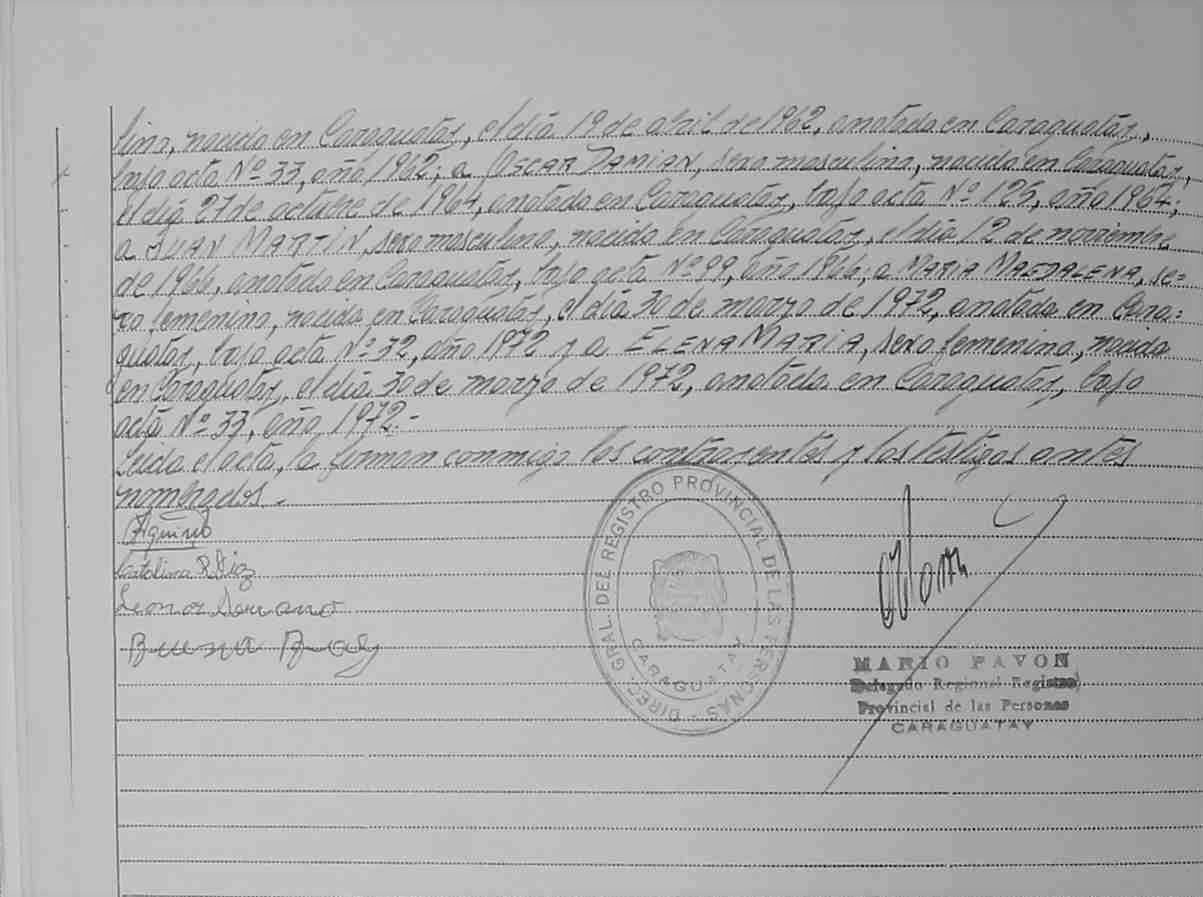 lino, nacido en Caraguatay, el día 19 de abril de 1962, anotado en Caraguatay,
bajo acta Nº 33, año 1962; a OSCAR DAMIAN, sexo masculino, nacido en Caraguatay,
el día 27 de octubre de 1964, anotado en Caraguatay, bajo acta Nº 125, año 1964;
a JUAN MARTIN, sexo masculino, nacido en Caraguatay, el día 12 de noviembre
de 1966, anotado en Caraguatay, bajo acta Nº 99, año 1966; a MARIA MAGDALENA, se-
xo femenino, nacida en Caraguatay, el día 30 de marzo de 1972, anotada en Cara-
guatay, bajo acta Nº 32, año 1972 y a ELENA MARIA, sexo femenino, nacida
en Caraguatay, el día 30 de marzo de 1972, anotada en Caraguatay, bajo
acta Nº 33, año 1972.-
Leída el acta, la firman conmigo los contrayentes y los testigos antes
nombrados.-
Aquino
Catalina R Diaz
Leonor Soriano
DIREC. GRAL. DEL REGISTRO PROVINCIAL DE LAS PERSONAS
CARAGUATAY
MARIO PAVON
Delegado Regional Registro
Provincial de las Personas
CARAGUATAY